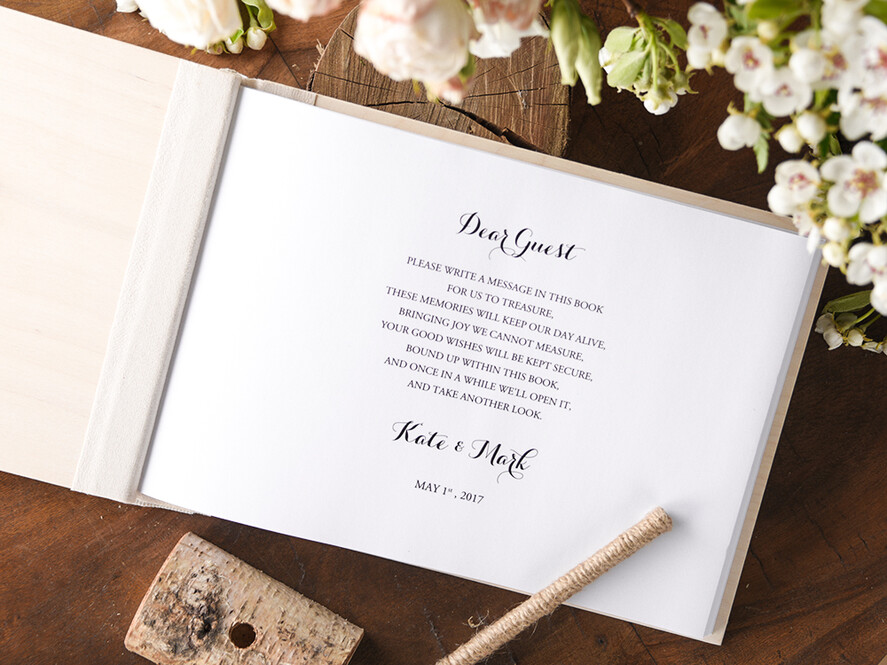 Dear Guest
PLEASE WRITE A MESSAGE IN THIS BOOK
FOR US TO TREASURE,
THESE MEMORIES WILL KEEP OUR DAY ALIVE,
BRINGING JOY WE CANNOT MEASURE,
YOUR GOOD WISHES WILL BE KEPT SECURE,
BOUND UP WITHIN THIS BOOK,
AND ONCE IN A WHILE WE'LL OPEN IT,
AND TAKE ANOTHER LOOK.
Kate & Mark
MAY 1st, 2017